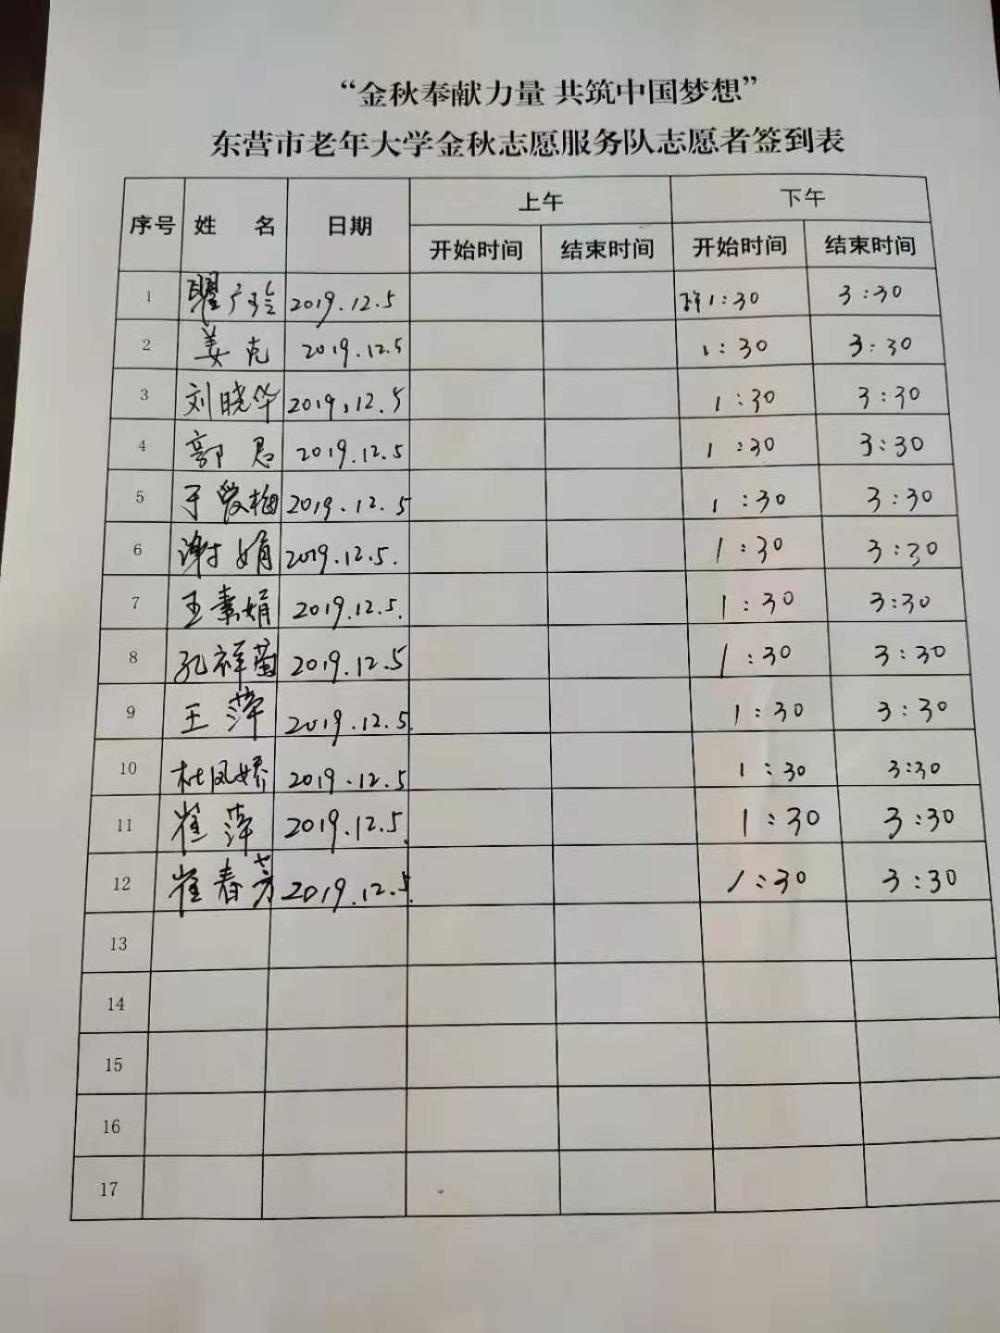 “金秋奉献力量 共筑中国梦想”
东营市老年大学金秋志愿服务队志愿者签到表
序号 姓 名 日期 上午 下午
开始时间 结束时间 开始时间 结束时间
1 2019.12.5 1:30 3:30
2 姜克 2019.12.5 1:30 3:30
3 刘晓华 2019.12.5 1:30 3:30
4 郭君 2019.12.5 1:30 3:30
5 于爱梅 2019.12.5 1:30 3:30
6 谢娟 2019.12.5. 1:30 3:30
7 王素娟 2019.12.5. 1:30 3:30
8 孔祥菊 2019.12.5 1:30 3:30
9 王萍 2019.12.5. 1:30 3:30
10 杜凤娇 2019.12.5 1:30 3:30
11 崔萍 2019.12.5. 1:30 3:30
12 崔春芳 2019.12.5. 1:30 3:30
13
14
15
16
17